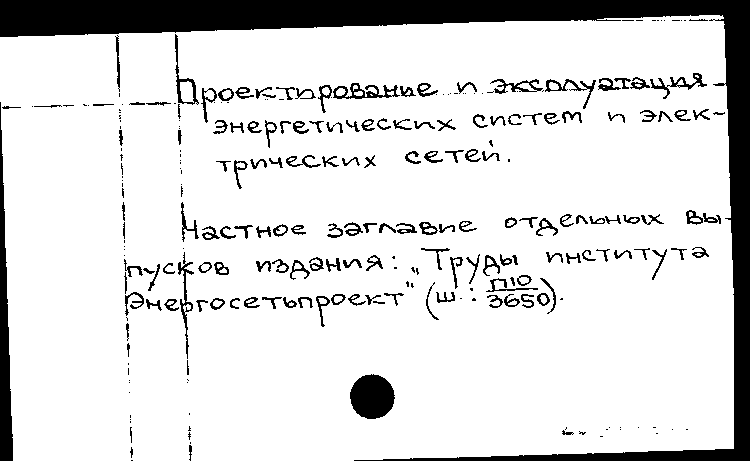 Проектирование и эксплуатация
энергетических систем и элек-
трических сетей.
Частное заглавие отдельных вы-
пусков издания: „Труды института
Энергосетьпроект" (ш: П10/3650).